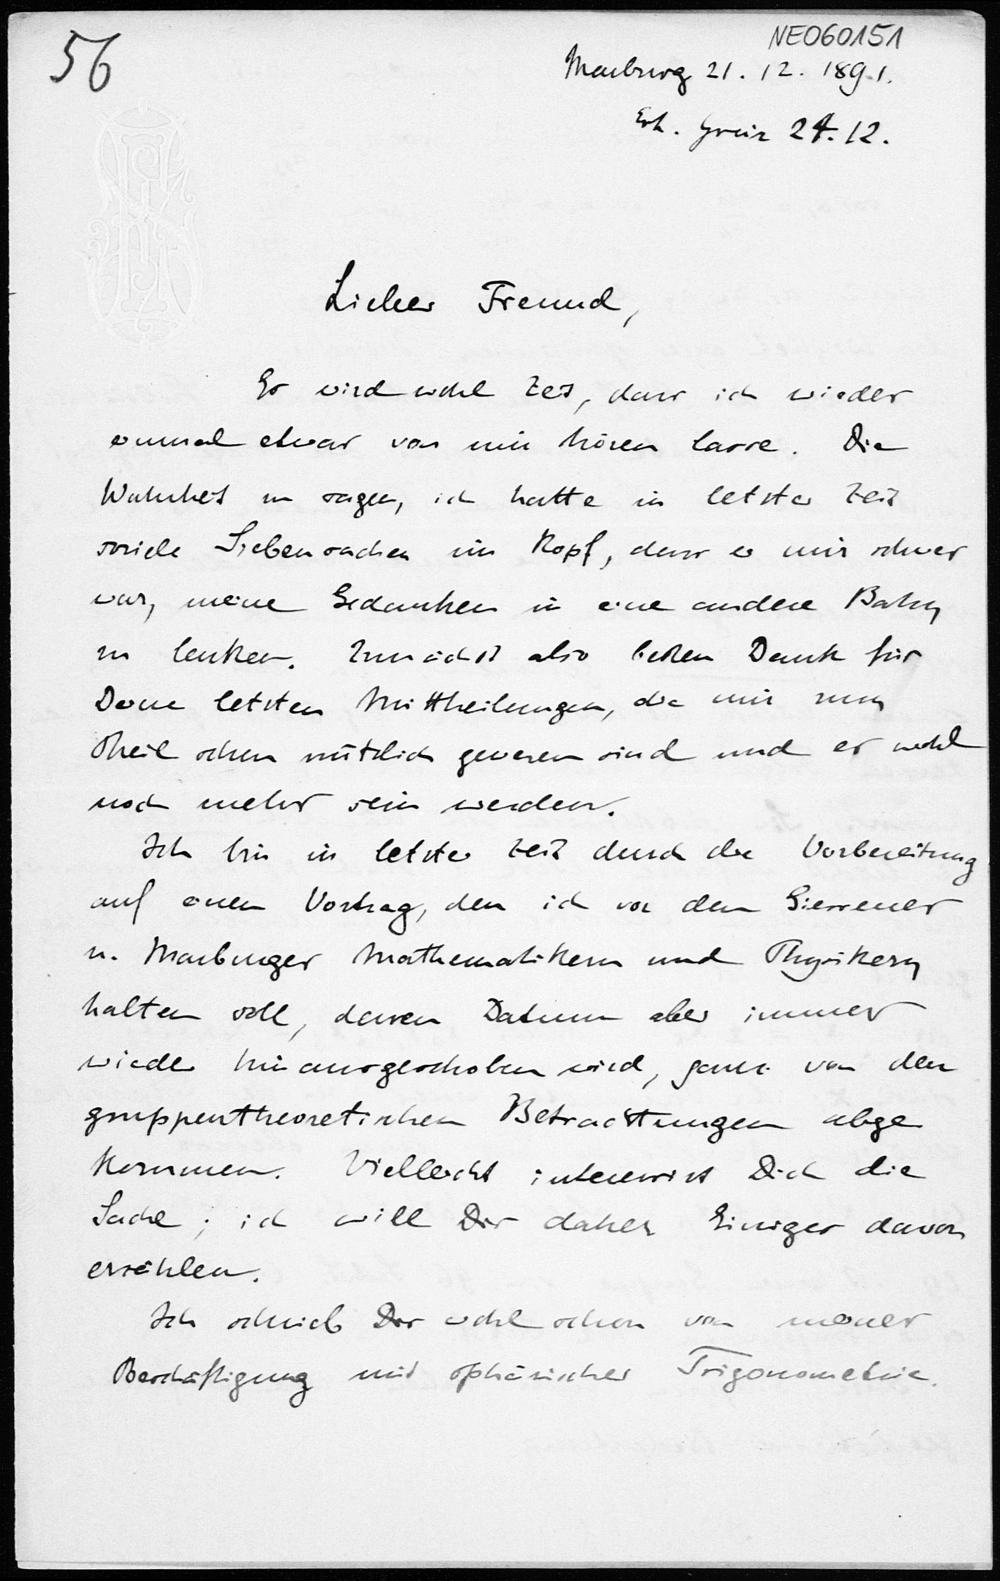 56
NEO60151
Marburg 21. 12. 1891.
Erh. 24. 12.
Lieber Freund,
Es wird wohl Zeit, dass ich wieder
einmal etwas von mir hören lasse. Die
Wahrheit zu sagen, ich hatte in letzter Zeit
soviele Siebensachen im Kopf, dass es mir schwer
war, meine Gedanken in eine andere Bahn
zu lenken. Zunächst also besten Dank für
Deine letzten Mittheilungen, die mir zum
Theil schon nützlich gewesen sind und es wohl
noch mehr sein werden.
Ich bin in letzter Zeit durch die Vorbereitung
auf einen Vortrag, den ich vor den Giessener
u. Marburger Mathematikern und Physikern
halten soll, dessen Datum aber immer
wieder hinausgeschoben wird, ganz von den
gruppentheoretischen Betrachtungen abge
kommen. Vielleicht interessirt Dich die
Sache; ich will Dir daher Einiges davon
erzählen.
Ich schrieb Dir wohl schon von meiner
Beschäftigung mit sphärischer Trigonometrie.